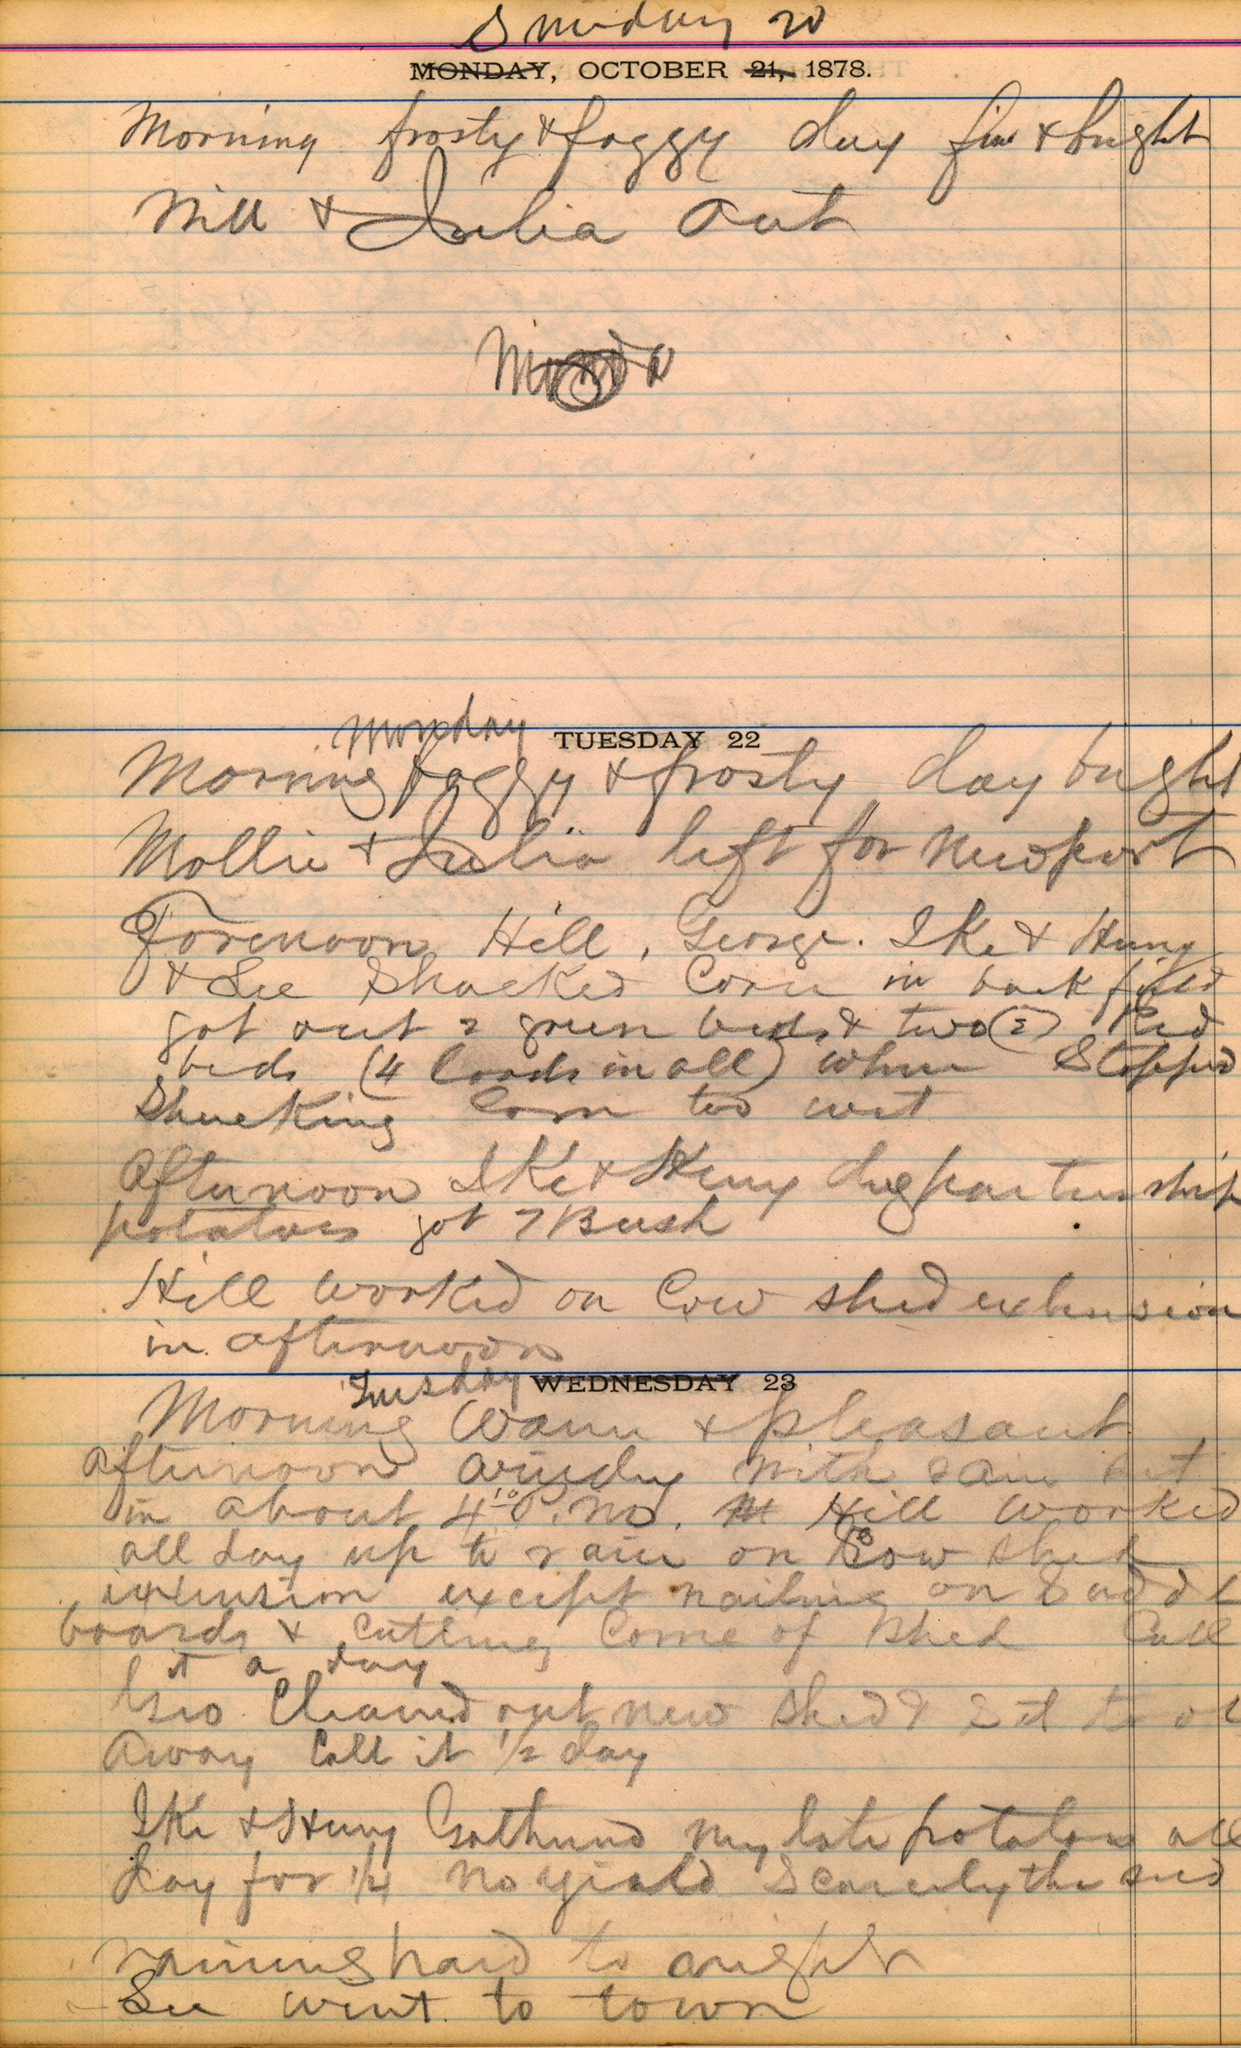 Sunday 20
MONDAY, OCTOBER 21, 1878.
Morning frosty & foggy day fine & bright
Will & Julia out
Monda
Monday
TUESDAY 22
Morning foggy & frosty day bright
Mollie & Julia left for Newport
Forenoon Hill, George. Ike & Henry
& Lee Shucked Corn in back field
got out 2 green beds & two (2) Red
beds (4 loads in all) when Stopped
Shucking Corn too wet
Afternoon Ike & Henry dug partnership
potatoes got 7 Bush
Hill worked on Cow shed extension
in afternoon
Tuesday
WEDNESDAY 23
Morning Warm & pleasant
afternoon windy with rain set
in about 4 P.M. Hill worked
all day up to rain on Cow shed
extension except nailing on
boards & cutting Corne of shed Call
it a day
Geo. Cleaned out new shed &
away Call it 1/2 day
Ike & Henry Gathered my late potatoes all
day for 1/4 no yield Scarcely the seed
raining hard to night
Lee went to town